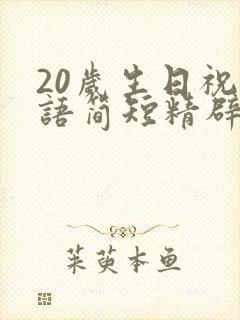 20歲生日祝
語简短精辟
茱萸本鱼